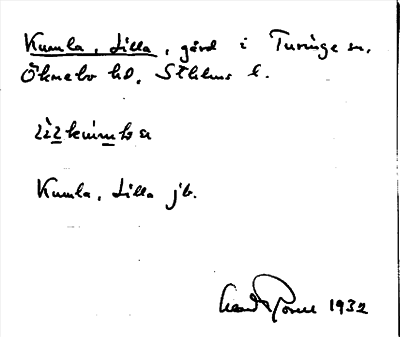 Kumla, Lilla, gård i Turinge sn,
Öknebo hd, Sthlms l.
Kumla, Lilla jb.
1932